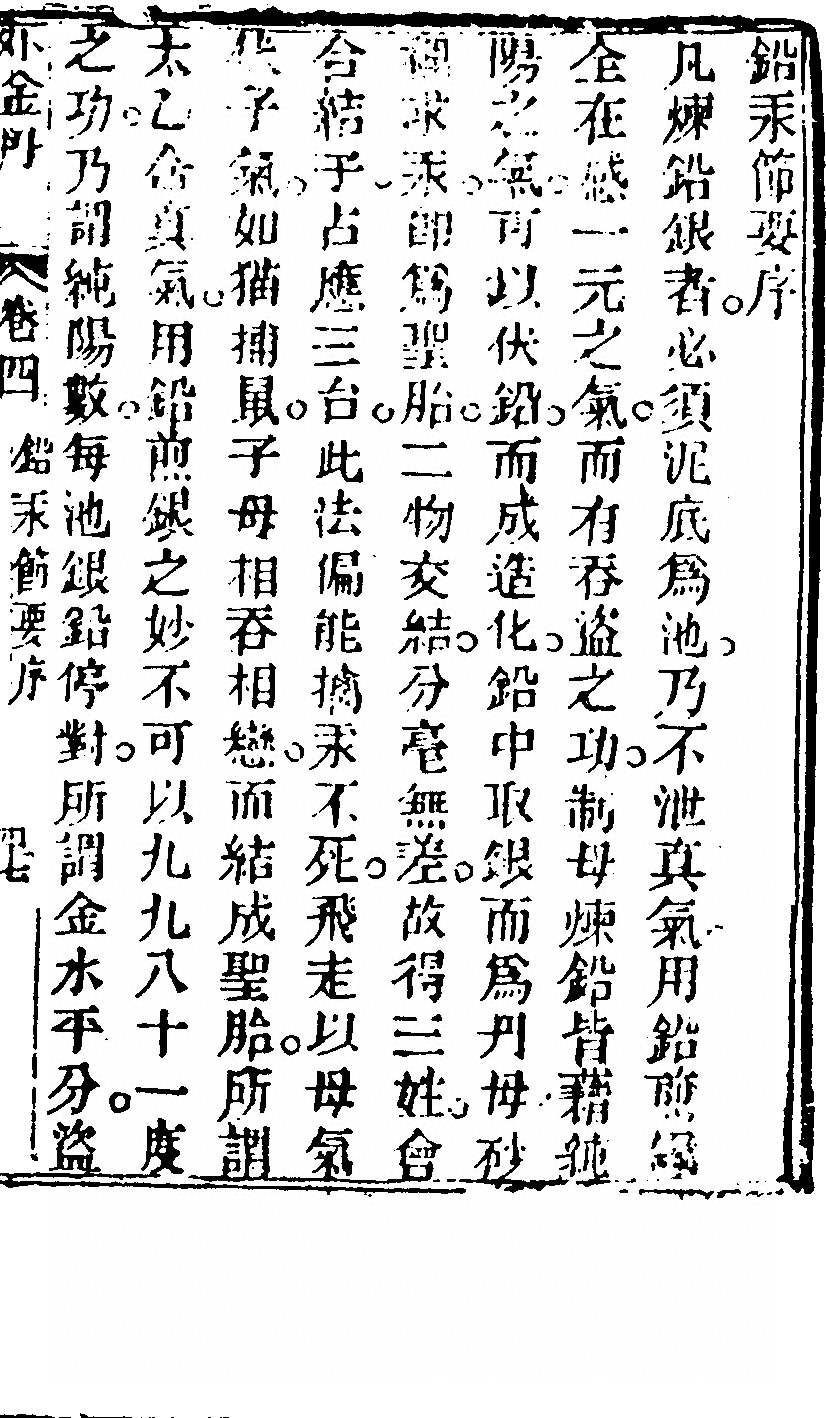 鉛汞節要序
凡煉鉛銀者必須泥底爲池乃不泄真氣用鉛煎銀
全在感一元之氣而有吞盜之功制母煉鉛皆藉純
陽之氣可以伏鉛而成造化鉛中取銀而爲丹母砂
裡求汞卽爲聖胎二物交結分毫無差故得三姓會
合結于占應三台此法偏能擒汞不死飛走以母氣
伏子氣如猫捕鼠子母相吞相戀而結成聖胎所謂
太乙含真氣用鉛煎銀之妙不可以九九八十一度
之功乃謂純陽數每池銀鉛停對所謂金水平分盜
外金丹 卷四 鉛汞節要序 四七